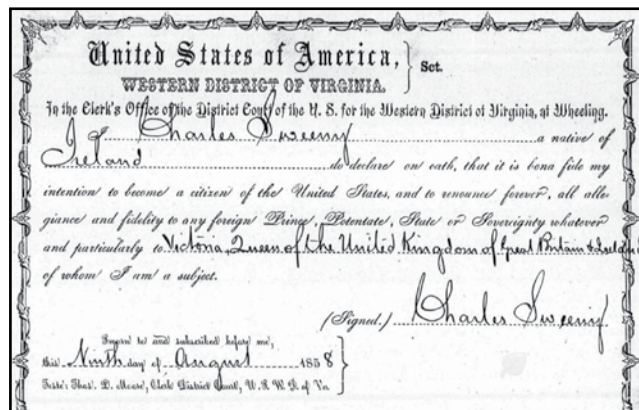 United States of America,
Sct.
WESTERN DISTRICT OF VIRGINIA.
In the Clerk's Office of the District Court of the U. S. for the Western District of Virginia, at Wheeling.
I Charles Sweeny a native of
Ireland do declare on oath, that it is bona fide my
intention to become a citizen of the United States, and to renounce forever, all alle-
giance and fidelity to any foreign Prince, Potentate, State or Sovereignty whatever
and particularly to Victoria, Queen of the United Kingdom of Great Britain & Ireland
of whom I am a subject.
(Signed.) Charles Sweeny
Sworn to and subscribed before me,
this Ninth day of August 1858
Teste: Thos. D. Clerk District Court, U. S. W. D. of Va